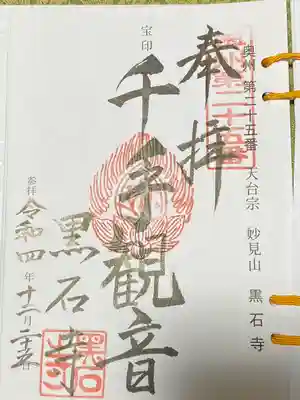 奥州 第二十五番 天台宗 妙見山 黒石寺
奉拝
宝印
千手観音
黒石寺
参拝
令和四年十二月二十五日